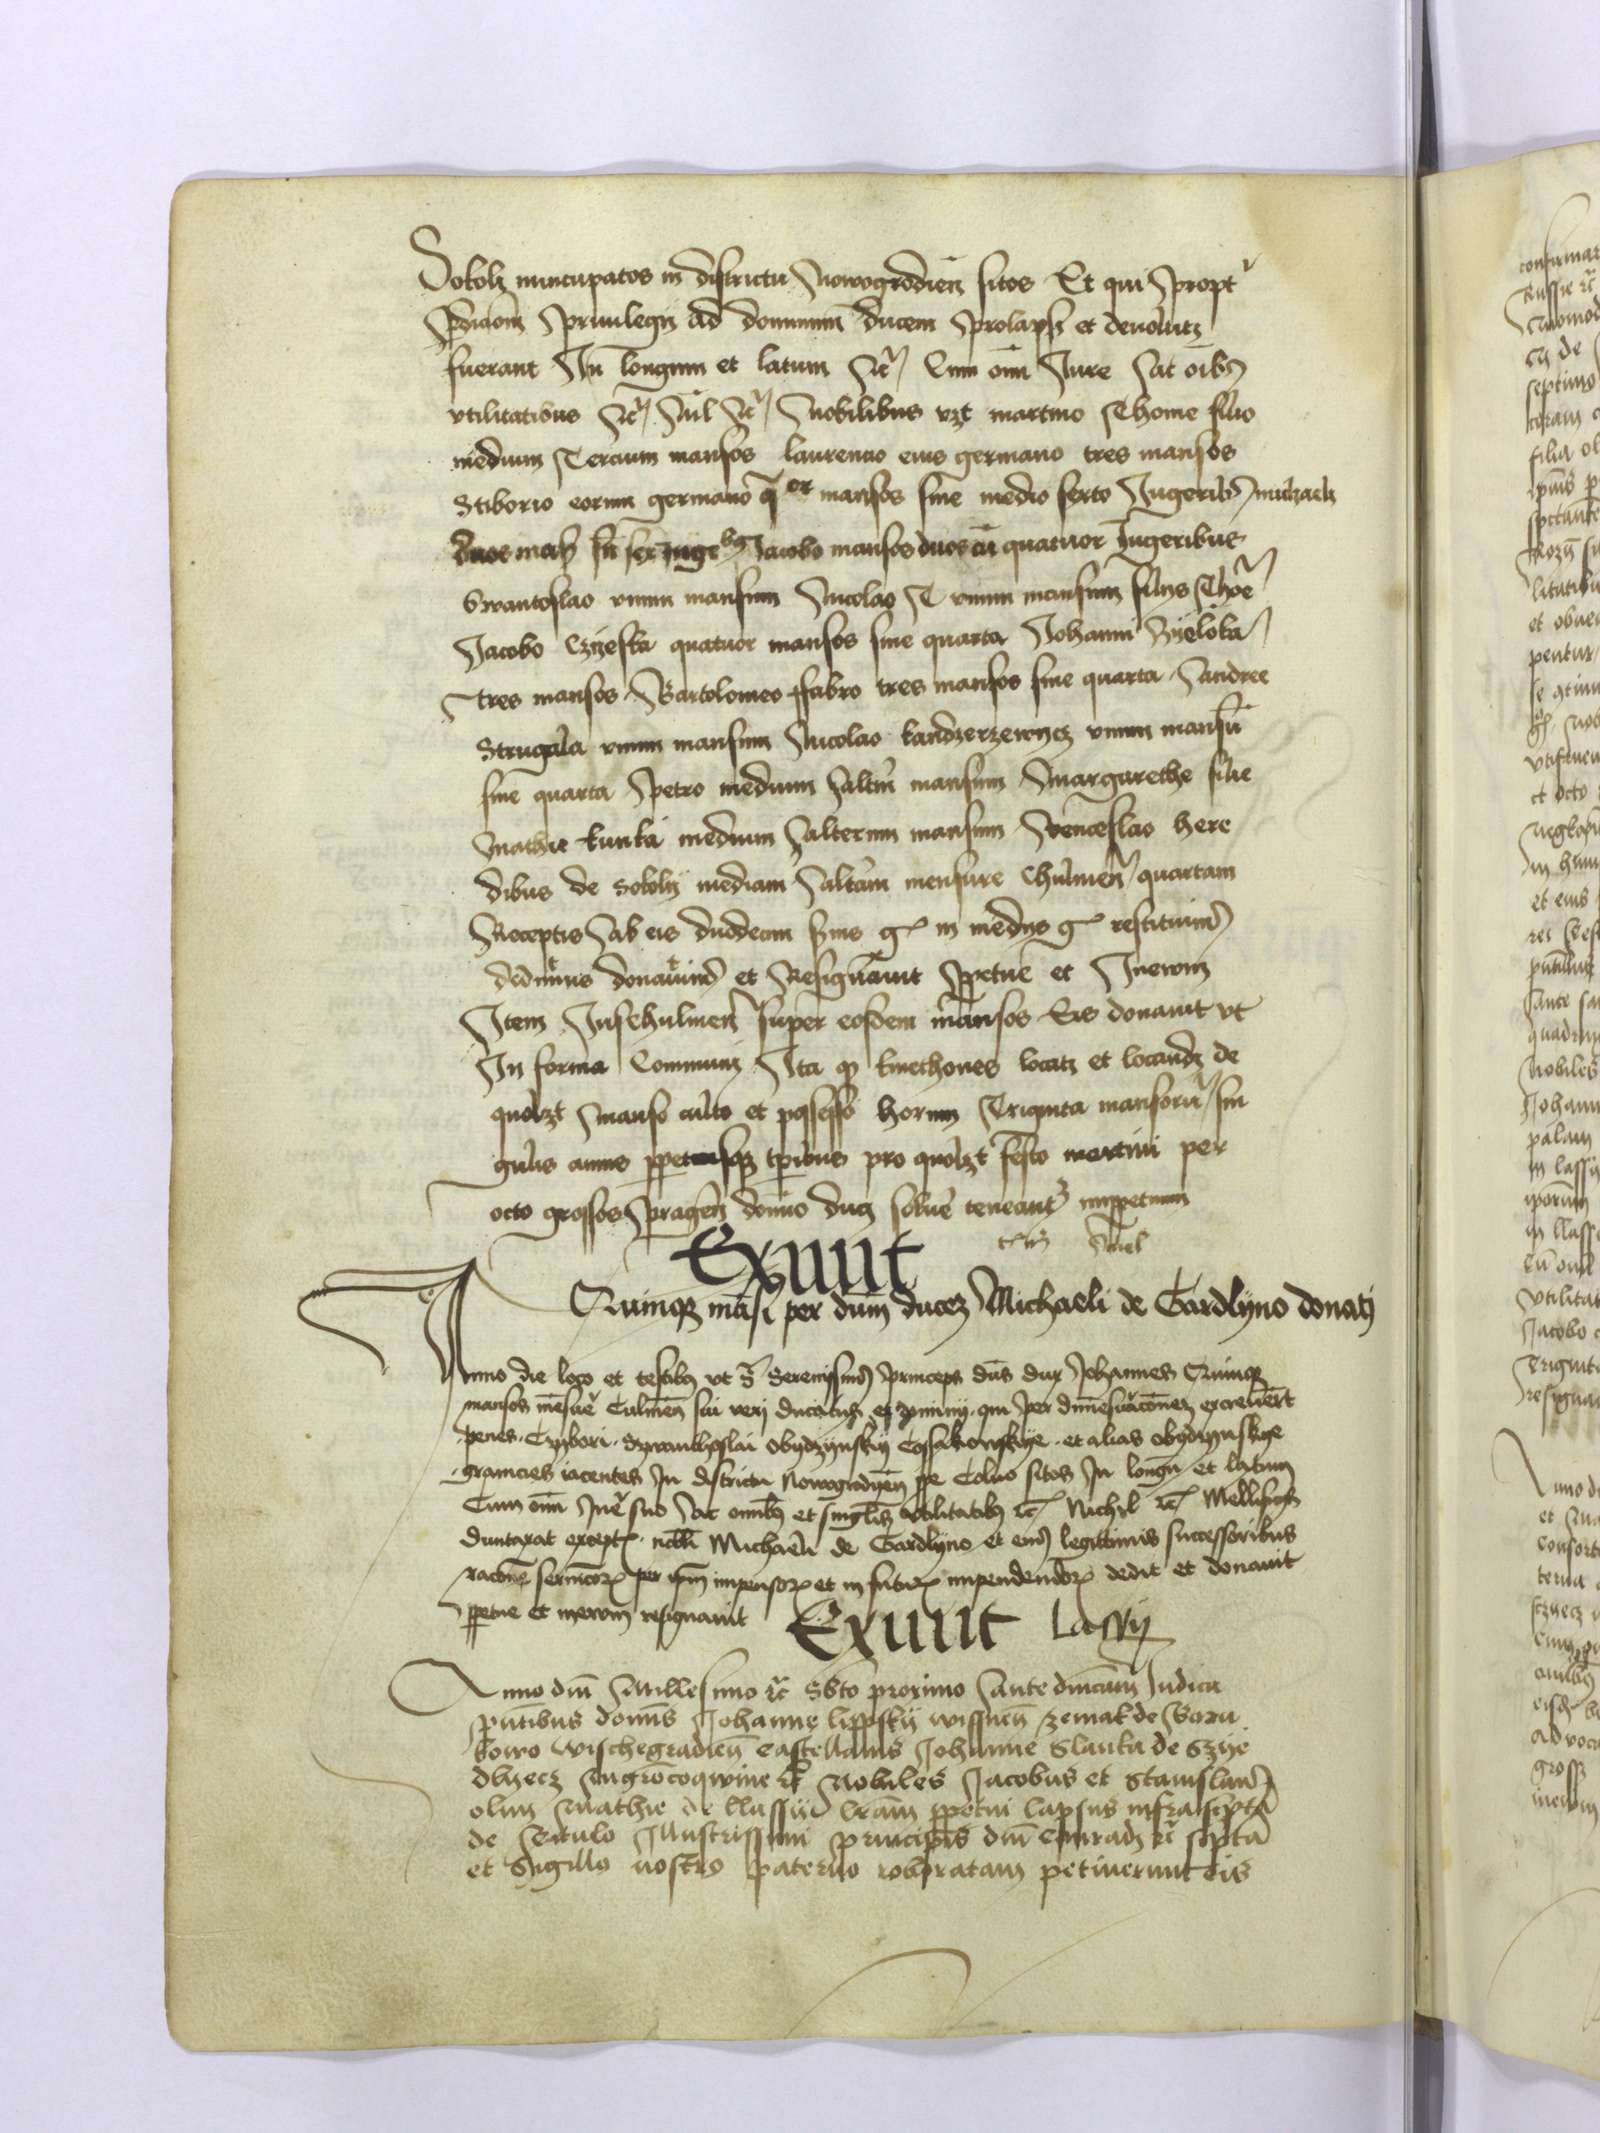 Sokoly nuncupatos in districtu Nowogrodień sitos Et qui propt
pdicōm priuilegij ad dominum ducem prolapsi et deuoluti
fuerant In longum et latum etc Cum om̄i Iure ac oībus
vtilitatibus etc Nil etc Nobilibus vz̄t martino Thome filio
medium Tercium mansos laurencio eius germano tres mansos
Stiborio eorum germano q̄or mansos sine medio sexto Iugeribus michaeli
duos mans̄ sn̄ sex Iugebus Iacobo mansos duos cū quatuor Iugeribus
Swantoslao vnum mansum Nicolao T vnum mansum filijs Thoē
Iacobo Czijeska quatuor mansos sine quarta Iohanni Bijeloka
tres mansos Bartolomeo ffabro tres mansos sine quarta Andree
Strugala vnum mansum Nicolao kandzerzewycz vnum mansū
sine quarta Petro medium altm̄ mansum Margarethe filie
Mathie kunka medium alterum mansum Venceslao here
dibus de Sokoly mediam altam̄ mensure Chulmeñ quartam
Receptis ab eis duodecim sms g in medijs g restituimus
dedimus donauimus et Resignauit ppetue et Ineuum
Item Iuschulmeñ super eosdem mansos Eis donauit vt
In forma Communi Ita q kmethones locati et locandi de
quolz̄t manso culto et possesso horum Triginta mansorū sin
gulis annis ppetuisqz tpibus pro quolz̄t festo martini per
octo grossos Pragen̄ domino duci soluē teneant̄ imppetuum
Exiuit
Quinqz māsi per dūm ducez Michaeli de Gardlyno donati
Anno die loco et testibus vt s̄ Serenissimus princeps dūs dux Iohannes Quinqz
mansos mēsurē Culmēn sui veri ducatus ex qui per dimēsuracōnez excreuērt
penes Czybori Swantoslai Obydzynskij Cossakowskye et alias Obydzynskye
granicies iacentes In districtu Nowogrodyēn ppe Colno sitos In longū et latum
Cum om̄i Iurē suo Ac omībus et singlis vtilitatibus etc Nichil etc Mellificijs
duntaxat except nobli Michaeli de Gardlyno et eius legittimis successoribus
racōne seruicorum per ipm̄ impensorum et in futurum impendendorum dedit et donauit
ppetue et ineuum resignauit Exiuit Lassy
Anno dni Millesimo etc Sbto proximo ante dnicam Iudica
pn̄tibus domīs Iohanne lippskij wissnen̄ zemak de Goru
kowo Wischegradien̄ Castellanis Iohanne Slanka de Szye
dlyecz etc Nobiles Iacobus et Stanislaus
olim Mathie de llassij lr̄am ppetui lapsus infrascpta
de Titulo Illustrissimi principis dni Conradi etc scpta
et Sigillo nostro paterno roboratam petiuerunt eis